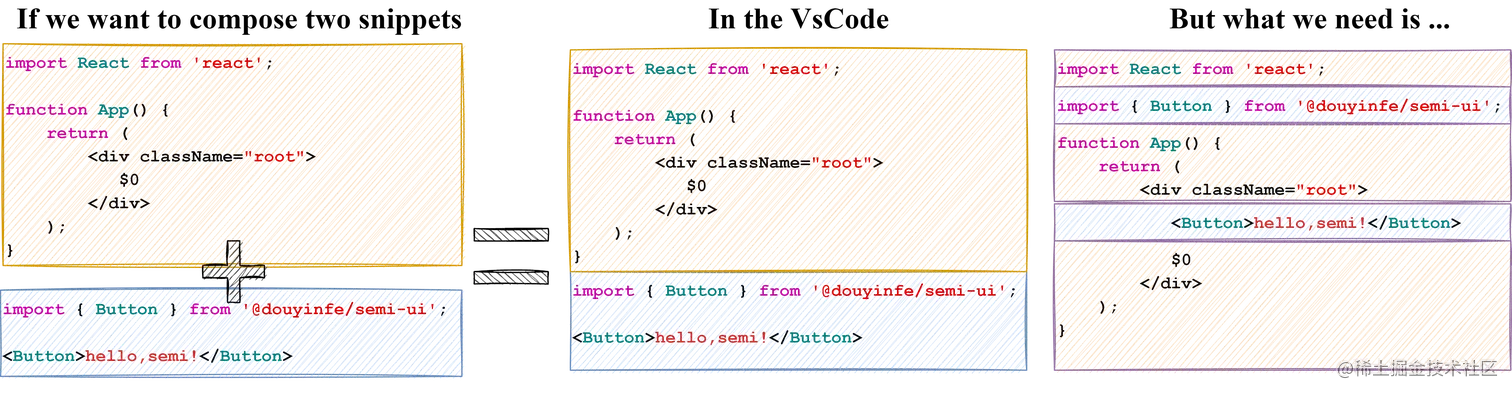 If we want to compose two snippets
import React from 'react';
function App() {
    return (
        <div className="root">
           $0
        </div>
    );
}
import { Button } from '@douyinfe/semi-ui';
<Button>hello,semi!</Button>
In the VsCode
import React from 'react';
function App() {
    return (
        <div className="root">
           $0
        </div>
    );
}
import { Button } from '@douyinfe/semi-ui';
<Button>hello,semi!</Button>
But what we need is ...
import React from 'react';
import { Button } from '@douyinfe/semi-ui';
function App() {
    return (
        <div className="root">
           <Button>hello,semi!</Button>
           $0
        </div>
    );
}
@稀土掘金技术社区